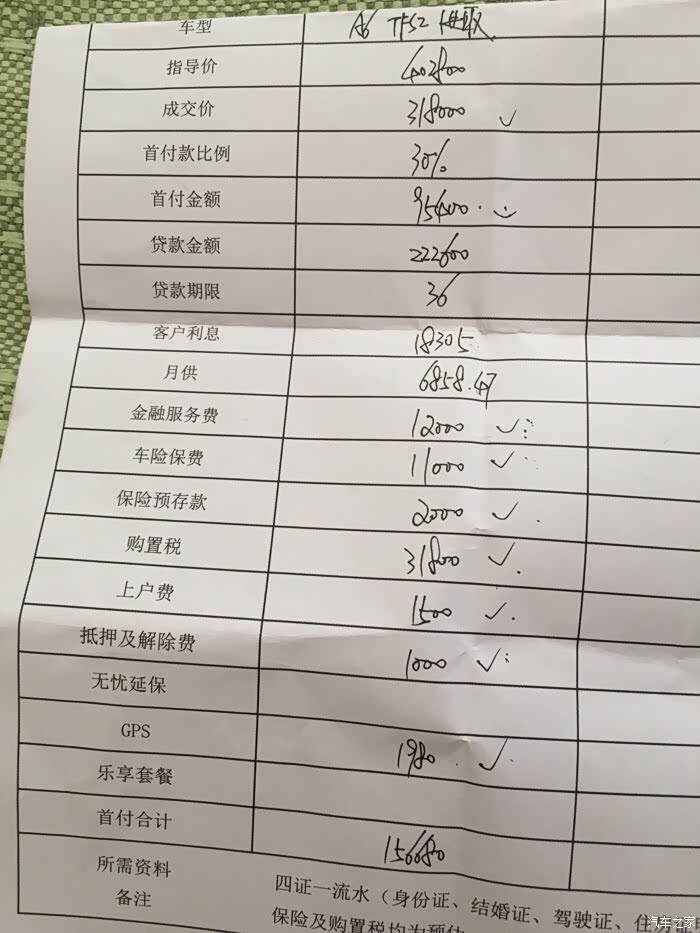 车型 A6 TFSI 进取
指导价 402800
成交价 318000 ✓
首付款比例 30%
首付金额 95400
贷款金额 222600
贷款期限 36
客户利息 18305
月供 6858.47
金融服务费 12000 ✓
车险保费 11000 ✓
保险预存款 2000 ✓
购置税 31800 ✓
上户费 1500 ✓
抵押及解除费 1000 ✓
无忧延保
GPS 1980 ✓
乐享套餐
首付合计 156680
所需资料
备注
四证一流水（身份证、结婚证、驾驶证、住房
保险及购置税均为预估
汽车之家